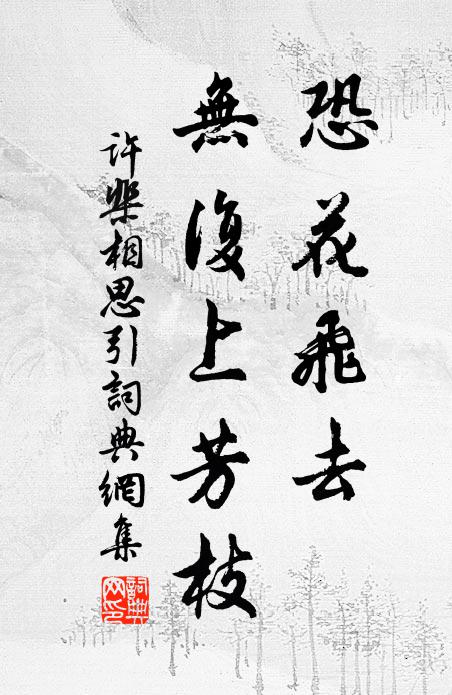 恐花飛去
無復上芳枝
許棐相思引詞典網集
詞典網印